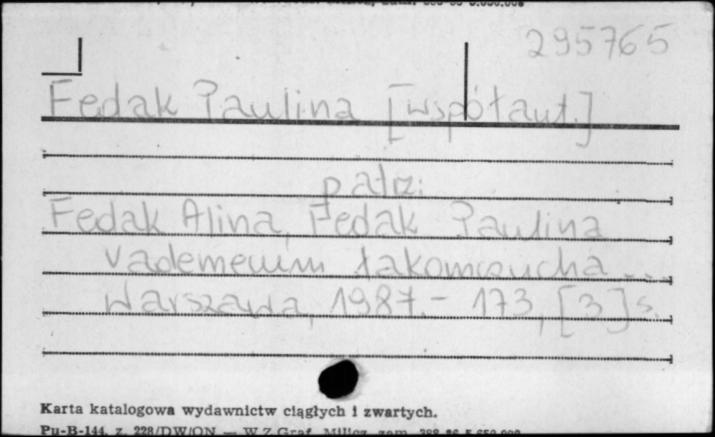 295765
Fedak Paulina [współaut.]
patrz:
Fedak Alina, Fedak Paulina
Vademecum łakomczucha ...
Warszawa, 1987.- 173, [3] s.
Karta katalogowa wydawnictw ciągłych i zwartych.
Pu-B-144, z. 228/DW/ON — W.Z.Graf. Milicz, zam.